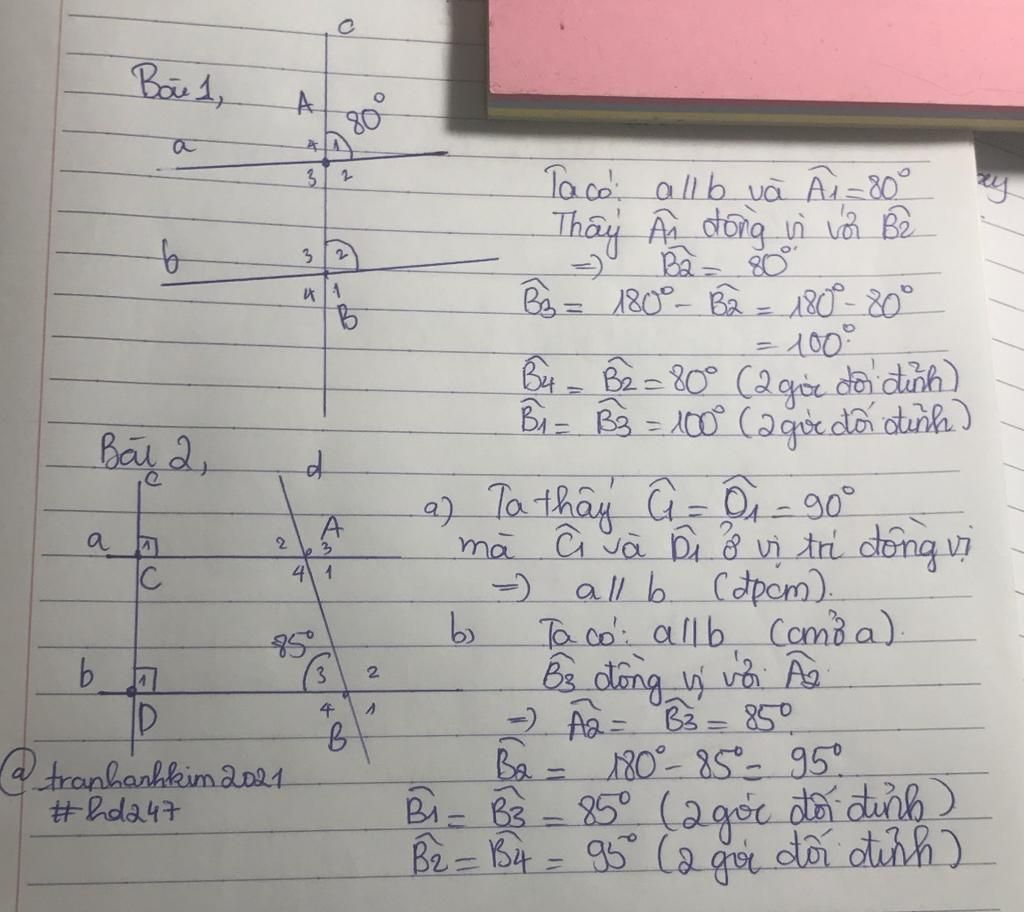 Bài 1,
c
A
80°
a
4 1
3 2
b
3 2
4 1
B
Ta có: a // b và Â1 = 80°
Thấy Â1 đồng vị với B̂2
=) B̂2 = 80°
B̂3 = 180° - B̂2 = 180° - 80°
= 100°
B̂4 = B̂2 = 80° (2 góc đối đỉnh)
B̂1 = B̂3 = 100° (2 góc đối đỉnh)
Bài 2,
c d
a 1 2 A 3
C 4 1
85°
b 1 3 2
D 4 1
B
a) Ta thấy Ĉ1 = D̂1 = 90°
mà Ĉ1 và D̂1 ở vị trí đồng vị
=) a // b (đpcm).
b) Ta có: a // b (cm ở a).
B̂3 đồng vị với Â2
=) Â2 = B̂3 = 85°
B̂2 = 180° - 85° = 95°
B̂1 = B̂3 = 85° (2 góc đối đỉnh)
B̂2 = B̂4 = 95° (2 góc đối đỉnh)
@tranhanhkim2021
#hd247